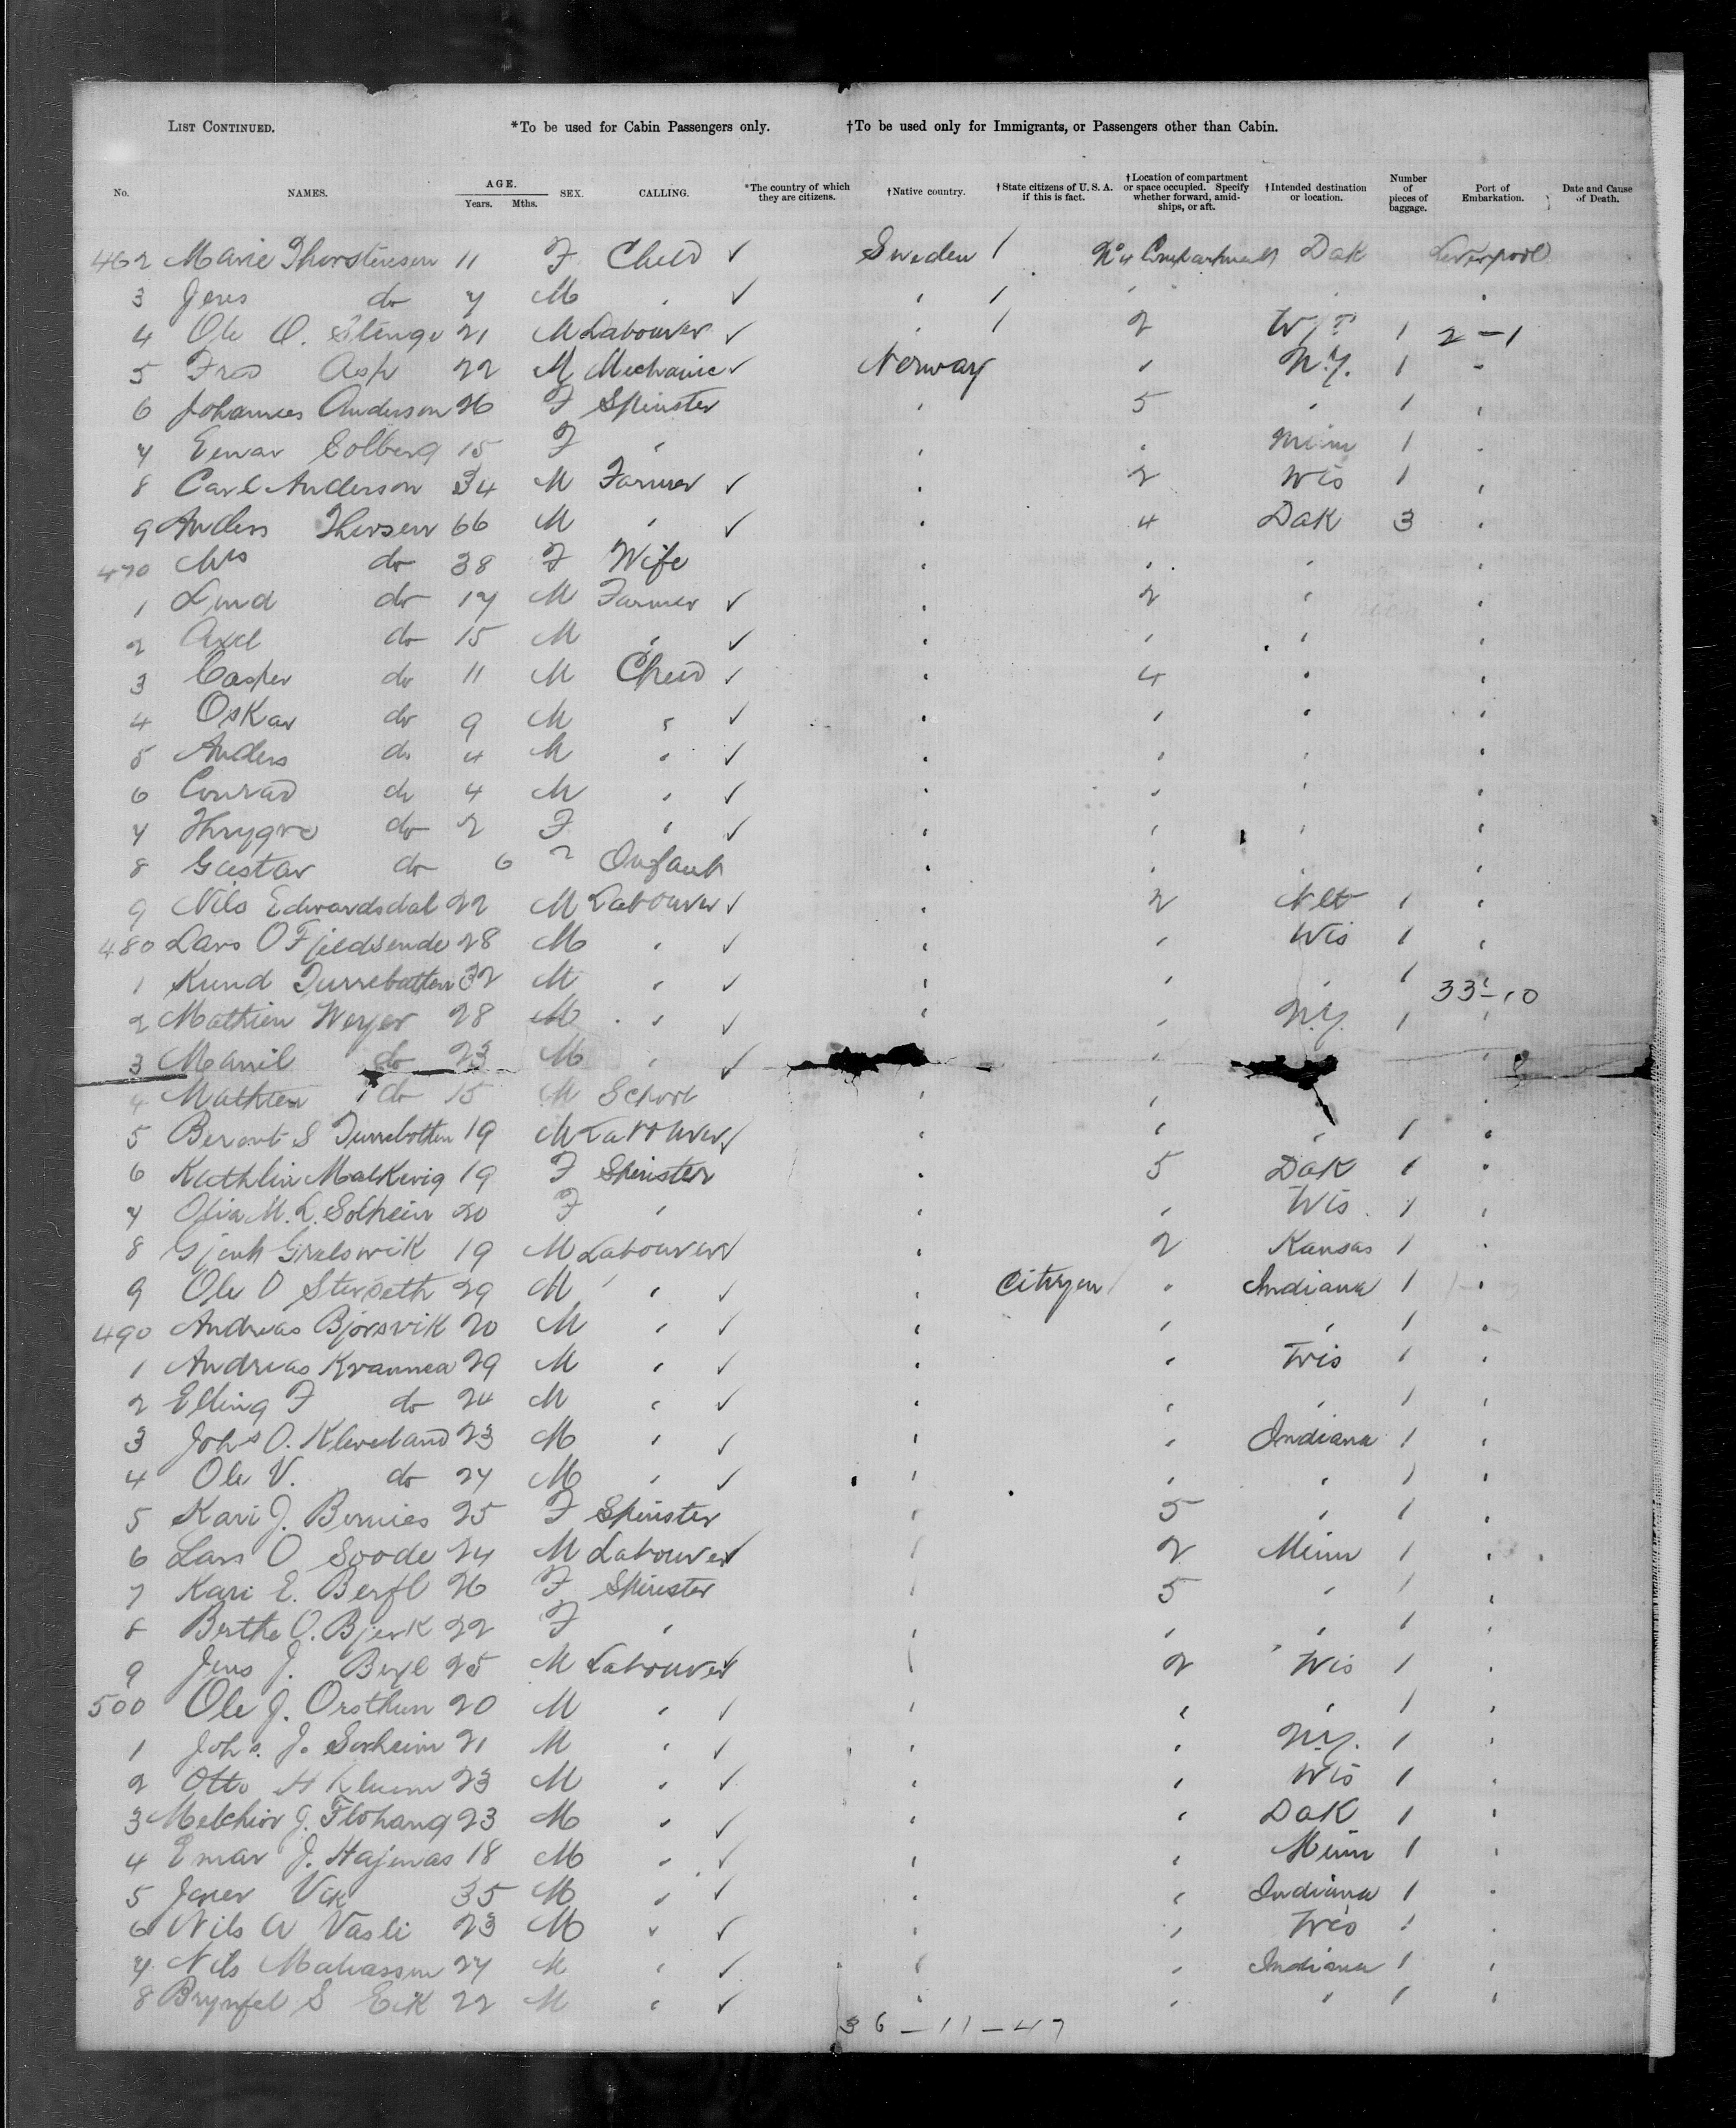 LIST CONTINUED. *To be used for Cabin Passengers only. †To be used only for Immigrants, or Passengers other than Cabin.
No. NAMES. AGE. Years. Mths. SEX. CALLING. *The country of which they are citizens. †Native country. †State citizens of U. S. A. if this is fact. †Location of compartment or space occupied. Specify whether forward, amidships, or aft. †Intended destination or location. Number of pieces of baggage. Port of Embarkation. Date and Cause of Death.
462 Marie Thorstensen 11 F Child ✓ Sweden / No 4 Compartment Dak Liverpool
3 Jens do 7 M " ✓ " / " " "
4 Ole O. Stenge 21 M Labourer ✓ " / 2 1 2-1
5 Fred Asp 22 M Mechanic ✓ Norway " N.Y. 1 "
6 Johannes Anderson 26 F Spinster " 5 " 1 "
7 Einar Solberg 15 F " " " Minn 1 "
8 Carl Anderson 34 M Farmer ✓ " 2 Wis 1 "
9 Anders Thorsen 66 M " ✓ " 4 Dak 3 "
470 Mrs do 38 F Wife " " " "
1 do 17 M Farmer ✓ " 2 " "
2 Axel do 15 M " ✓ " " " "
3 Casper do 11 M Child ✓ " 4 " "
4 Oskar do 9 M " ✓ " " " "
5 Anders do 4 M " ✓ " " " "
6 Conrad do 4 M " ✓ " " " "
7 Thrygve do 2 F " ✓ " " " "
8 Gustav do 6 Infant " " " "
9 Nils Edwardsdal 22 M Labourer ✓ " 2 1 "
480 Lars O Fjeldsende 28 M " ✓ " " Wis 1 "
1 Kund Turrebotten 32 M " ✓ " " " 1 " 33-10
2 Mathien Weyer 28 M " ✓ " " N.Y. 1 "
3 do 23 M " ✓ " "
4 Mathien do 15 M School " " "
5 Berent S Turrebotten 19 M Labourer ✓ " " " 1 "
6 Kathlin Malkevig 19 F Spinster " 5 Dak 1 "
7 Olia M. L. Solheim 20 F " " " Wis. 1 "
8 19 M Labourer ✓ " 2 Kansas 1 "
9 Ole O 29 M " ✓ " Citizen " Indiana 1 "
490 Andreas Bjorsvik 20 M " ✓ " " " 1 "
1 Andreas Kvannea 29 M " ✓ " " Wis 1 "
2 Elling F do 24 M " ✓ " " " 1 "
3 Johs O. Kleveland 23 M " ✓ " " Indiana 1 "
4 Ole V. do 27 M " ✓ " " " 1 "
5 Kari J. Bernies 25 F Spinster " 5 " 1 "
6 Lars O Soode 24 M Labourer ✓ " 2 Minn 1 "
7 Kari E. 26 F Spinster " 5 " 1 "
8 Berthe O. Bjerk 22 F " " " " 1 "
9 Jens J. 25 M Labourer ✓ " 2 Wis 1 "
500 Ole J. Orsthun 20 M " ✓ " " " 1 "
1 Johs. J. Sorheim 21 M " ✓ " " N.Y. 1 "
2 Otto H 23 M " ✓ " " Wis 1 "
3 Melchior J. Flohang 23 M " ✓ " " Dak 1 "
4 Emar J. Hajenas 18 M " ✓ " " Minn 1 "
5 Vik 35 M " ✓ " " Indiana 1 "
6 Nils A Vasli 23 M " ✓ " " Wis 1 "
7 Nils 27 M " ✓ " " Indiana 1 "
8 S Eik 22 M " ✓ " " " 1 "
36-11-47